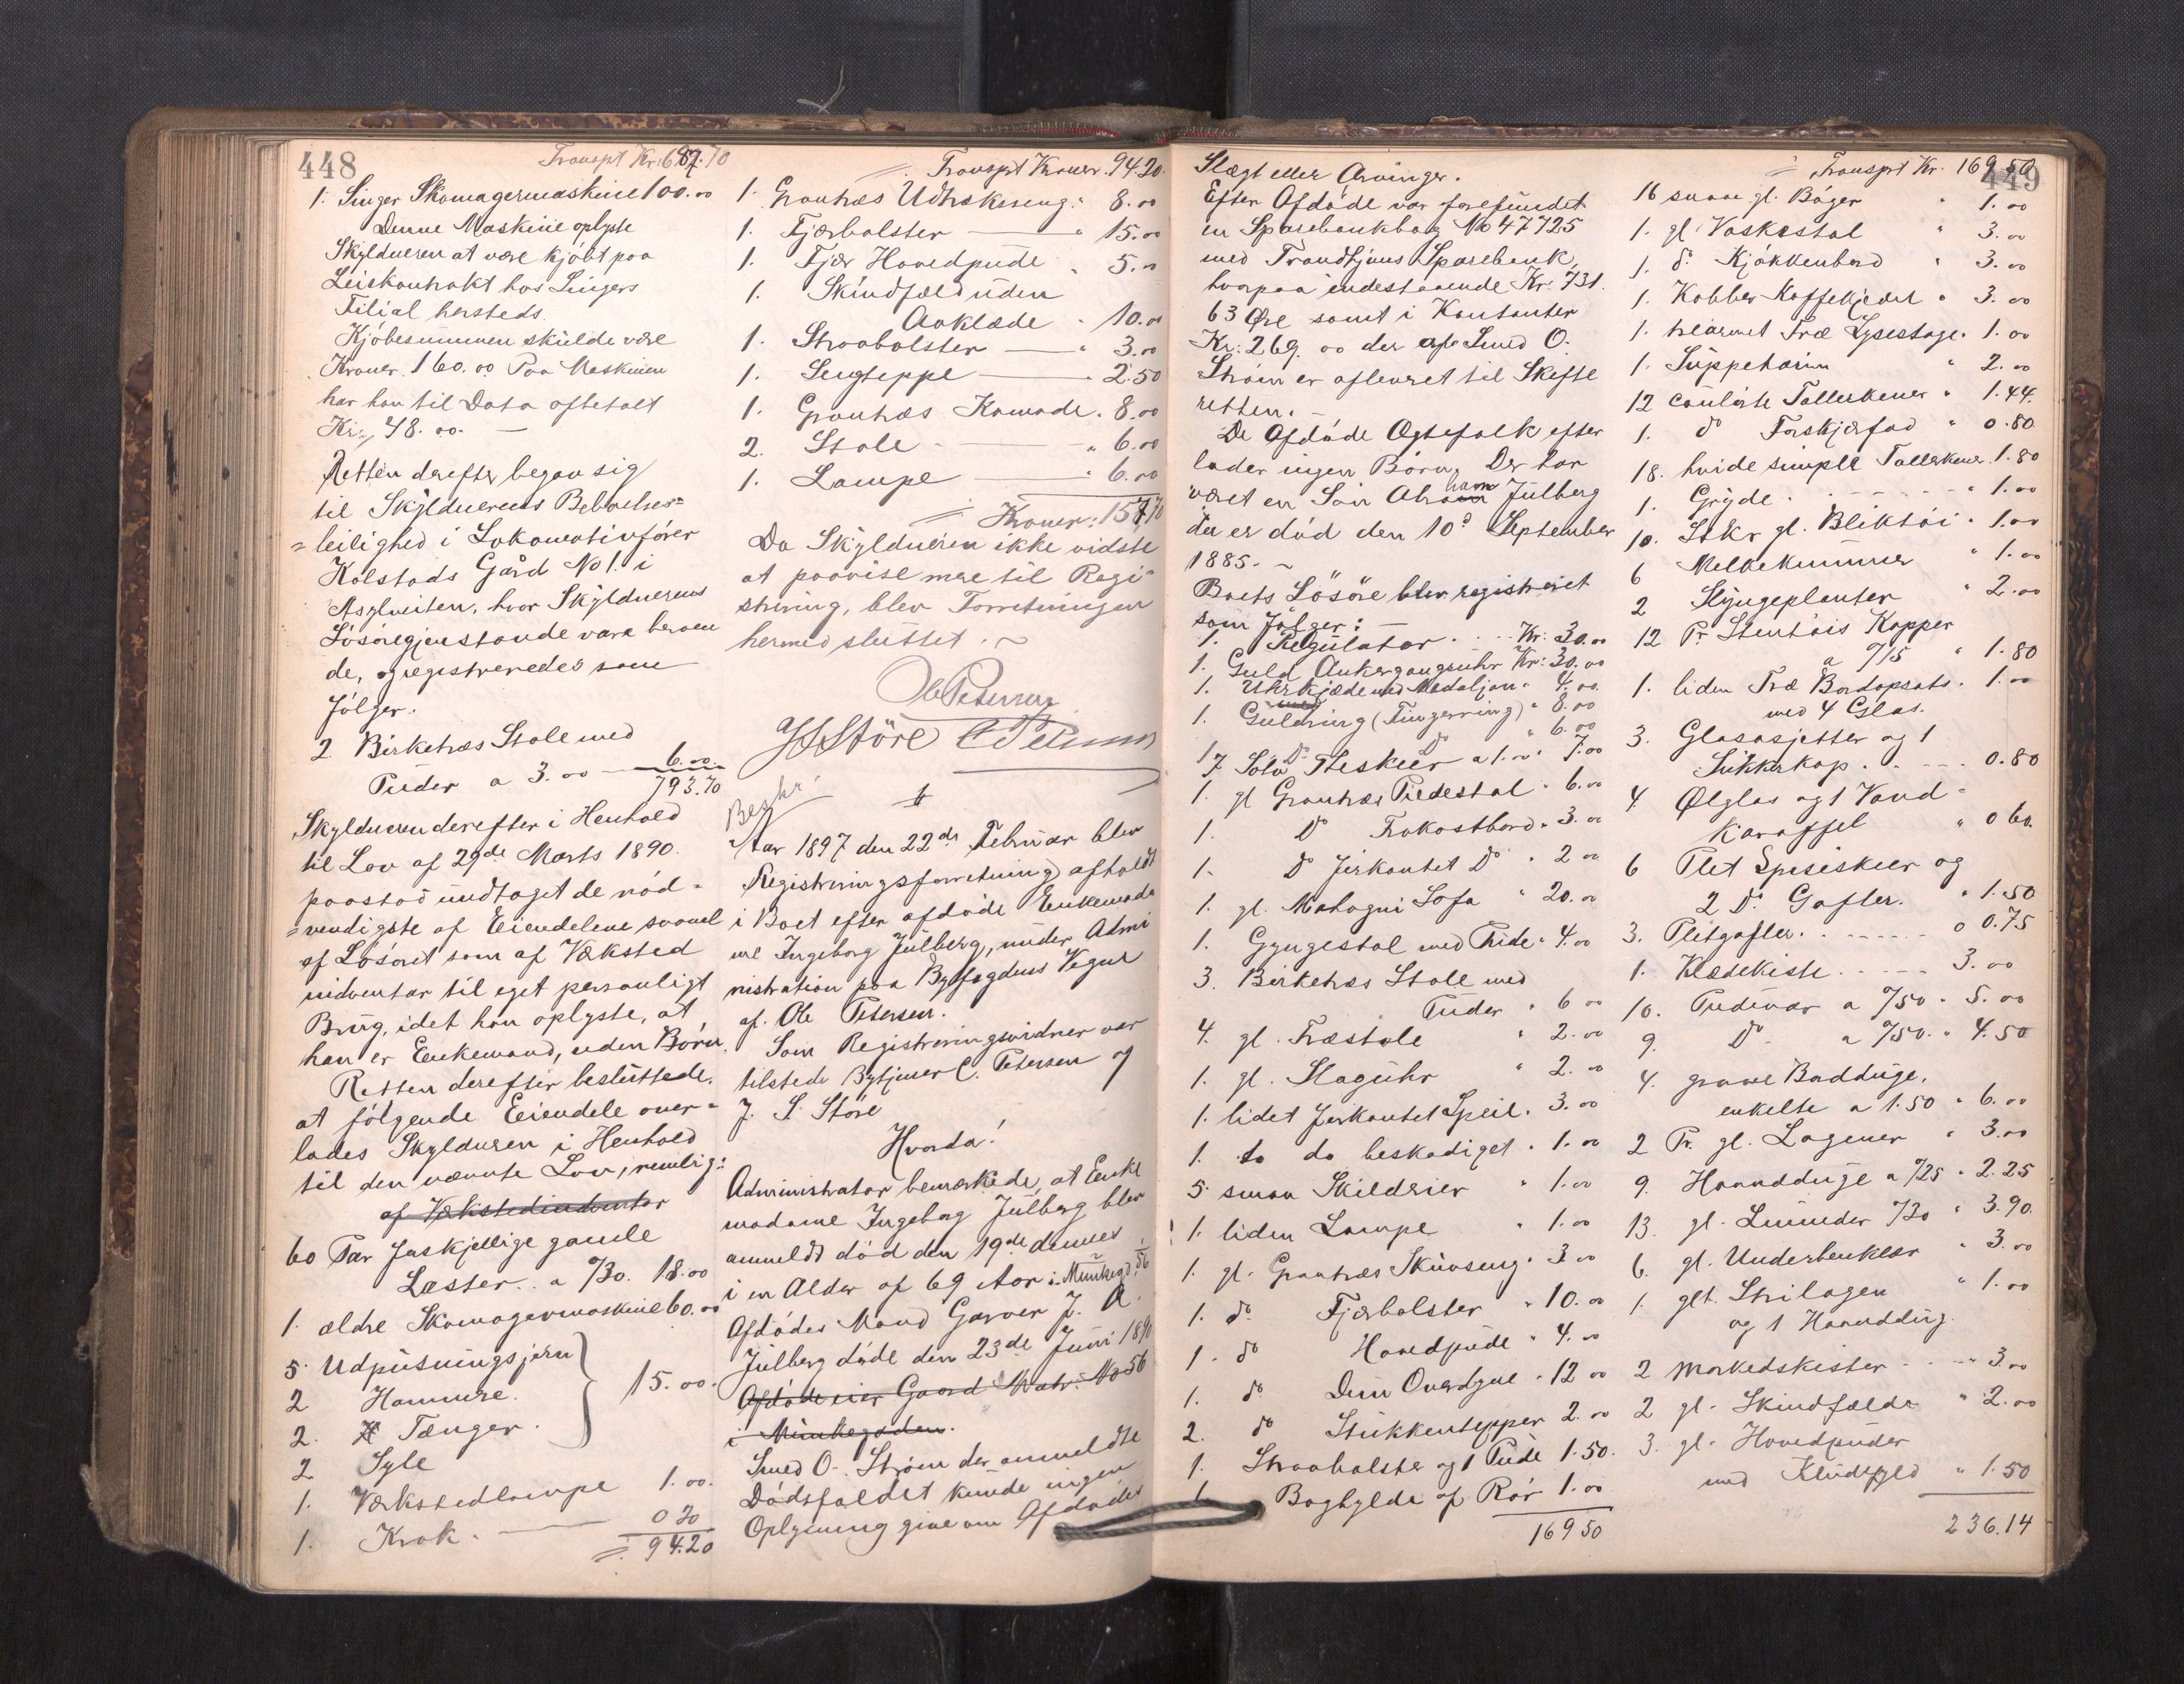 448
Transpt Kr. 687.70
1. Singer Skomagermaskine 100.00
Denne Maskine oplyste
Skylderen at være kjøbt paa
Leiekontrakt hos Singers
Filial hersteds.
Kjøbesummen skulde være
Kroner 160.00 Paa Maskinen
har han til Dato afbetalt
Kr. 48.00. —
Retten derefter begav sig
til Skyldnerens Beboelses=
=leilighed i Lokomotivfører
Kolstads Gård No 1. i
Asylveiten, hvor Skyldnerens
Løsøregjenstande vare beroen
de, og registreredes som
følger.
2 Birketræs Stole med
Puder a 3.00 — 6.00
793.70
Skyldneren derefter i Henhold
til Lov af 29de Marts 1890.
paastod undtaget de nød=
=vendigste af Eiendelene saavel
af Løsøret som af Værksted
indventar til eget personligt
Brug, idet han oplyste, at
han er Enkemand, uden Børn.
Retten derefter besluttede.
at følgende Eiendele over=
lades Skyldneren i Henhold
til den nævnte Lov, nemlig:
af Værkstedindventar
60 Par forskjellige gamle
Læster. a /30. 18.00
1. ældre Skomagermaskine 60.00
5 Udpudsningsjern
2 Hammere.
2. Tænger.
15.00.
2 Syle
1. Værkstedlampe 1.00.
1. Krak. — 0 20
= 94.20
= Transpt Kroner. 94.20.
1. Grantræs Udtræksseng. " 8.00
1. Fjærbolster — " 15.00
1. Fjær Hovedpude " 5.00
1. Skindfæld uden
Aaklæde " 10.00
1. Straabolster — " 3.00
1. Sengteppe — " 2.50
1. Grantræs Komode. 8.00
2. Stole — " 6.00
1. Lampe — " 6.00
= Kroner: 157.70
Da Skyldneren ikke vidste
at paavise mere til Regi=
strering, blev Forretningen
hermed sluttet. ~
Ole Petersen
J S Störe C Petersen
Aar 1897 den 22de Februar blev
Registreringsforretning afholdt
i Boet efter afdøde Enkemada
me Ingeborg Julberg, under Admi
nistration paa Byfogdens Vegne
af. Ole Petersen.
Som Registreringsvidner var
tilstede Bytjener C. Petersen og
J. S. Störe
Hvorda!
Administrator bemærkede, at Enke
madame Ingeborg Julberg blev
anmeldt død den 19de dennes
i en Alder af 69 Aar i Munkegd. 56
Afdødes Mand Garver J. A.
Julberg døde den 23de Juni 1890
Afdøde eier Gaard Matr. No 56
i Munkegaden.
Smed O. Strøm der anmeldte
Dødsfaldet kunde ingen
Oplysning give om Afdødes
449
Slægt eller Arvinger.
Efter Afdøde var forefundet
en Sparebankbog No 47725
med Trondhjems Sparebank,
hvorpaa indestaaende Kr. 731.
63 Øre samt i Kontanter
Kr. 269.00 der af Smed O.
Strøm er afleveret til Skifte
retten. —
De Afdøde Ægtefolk efter
lader ingen Børn, Der har
været en Søn Abraham Julberg
der er død den 10de September
1885. ~
Boets Løsøre blev registreret
som følger: —
1. Regulator . . . Kr: 30.00
1. Guld Ankergangsuhr Kr: 30.00
1. Uhrkjæde med Medaljon " 4.00.
1. Guldring (Fingerring) " 8.00
1 Do Do " 6.00
7 Sølv Theskeer a 1.00 " 7.00
1. gl Grantræs Piedestal " 6.00
1. Do Frokostbord " 3.00
1. Do firkantet Do " 2.00
1. gl. Mahogni Sofa " 20.00
1. Gyngestol med Pude " 4.00
3. Birketræs Stole med
Puder " 6.00
4. gl. Træstole " 2.00
1. gl. Slaguhr " 2.00
1. lidet firkantet Speil. 3.00
1. do do beskadiget " 1.00
5. smaa Skilderier " 1.00
1. liden Lampe " 1.00
1. gl. Grantræs Skuvseng " 3.00
1. do Fjærbolster " 10.00
1. do Hovedpude " 4.00
1. do Dun Overdyne " 12.00
2. do Stukkentepper 2.00
1. Straabolster og 1 Pude 1.50.
1. Boghylde af Rør 1.00
169 50
= Transpt Kr. 169.50
16 smaa gl. Bøger " 1.00
1. gl Vaskestol " 3.00
1. do Kjøkkenbord " 3.00
1. Kobber Kaffekjedel " 3.00
1. trearmet Træ Lysestage " 1.00
1. Suppeterrin " 2.00
12 coulørte Tallerkener " 1.44.
1. do Forskjærfad " 0.80
18. hvide simple Tallerkener 1.80
1. Gryde . . . . . " 1.00
10. Stkr gl. Bliktøi " 1.00
6 Melkekummer " 1.00
2 Slyngeplanter " 2.00
12 Pr Stentøis Kopper
a /15 " 1.80
1. liden Træ Bordopsats. 1.00
med 4 Glas.
3. Glasasjetter og 1
Sukkerkop. . . 0.80
4. Ølglas og 1 Vand=
Karaffel " 0 60.
6 Plet Spiseskeer og
2 Do Gafler. " 1.50
3. Pletgafler. . . . . . 0.75
1. Klædekiste. . . . . 3.00
10. Pudevar a /50 " 5.00
9. Do a /50. " 4.50
4. graae Badduge.
enkelte a 1.50 " 6.00
2 Pr. gl. Lagener " 3.00
9. Haandduge a /25 " 2.25
13. gl. Linneder /30 " 3.90.
6. gl. Underbenklær " 3.00
1. glt. Strilagen " 1.00
og 1 Haanddug.
2 Markedskister . . . " 3.00
2 gl. Skindfælde " 2.00
3. gl. Hovedpuder
med Kludefyld " 1.50
236.14